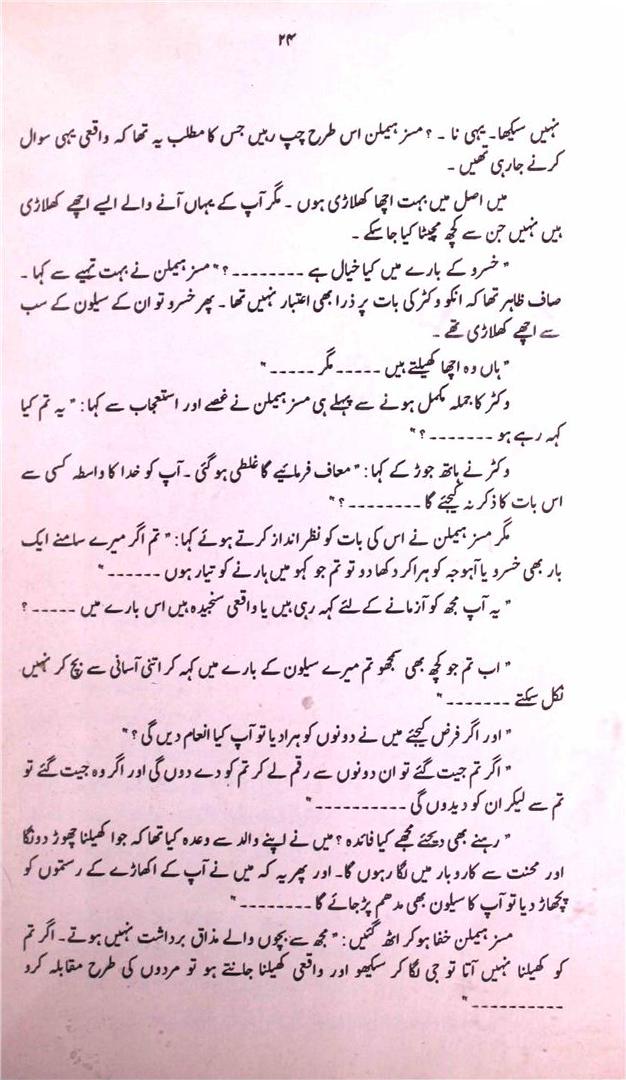 ۲۴
نہیں سیکھا۔ یہی نا ۔ ؟ مسز ہیملن اس طرح چپ رہیں جس کا مطلب یہ تھا کہ واقعی یہی سوال
کرنے جارہی تھیں ۔
میں اصل میں بہت اچھا کھلاڑی ہوں ۔ مگر آپ کے یہاں آنے والے ایسے اچھے کھلاڑی
ہیں نہیں جن سے کچھ چھینا کیا جاسکے ۔
" خسرو کے بارے میں کیا خیال ہے ۔۔۔۔۔۔۔۔ ؟ " مسز ہیملن نے بہت تیہے سے کہا ۔
صاف ظاہر تھا کہ انکو وکٹر کی بات پر ذرا بھی اعتبار نہیں تھا ۔ پھر خسرو تو ان کے سیلون کے سب
سے اچھے کھلاڑی تھے ۔
" ہاں وہ اچھا کھیلتے ہیں ۔۔۔۔۔ مگر ۔۔۔۔۔ "
وکٹر کا جملہ مکمل ہونے سے پہلے ہی مسز ہیملن نے غصے اور استعجاب سے کہا : " یہ تم کیا
کہہ رہے ہو ۔۔۔۔۔۔۔ ؟ "
وکٹر نے ہاتھ جوڑ کے کہا : " معاف فرمائیے گا غلطی ہو گئی ۔ آپ کو خدا کا واسطہ کسی سے
اس بات کا ذکر نہ کیجئے گا ۔۔۔۔۔۔۔۔ ؟ "
مگر مسز ہیملن نے اس کی بات کو نظر انداز کرتے ہوئے کہا : " تم اگر میرے سامنے ایک
بار بھی خسرو یا آہوجہ کو ہرا کر دکھا دو تو تم جو کہو میں ہارنے کو تیار ہوں ۔۔۔۔۔۔ "
" یہ آپ مجھ کو آزمانے کے لئے کہہ رہی ہیں یا واقعی سنجیدہ ہیں اس بارے میں ۔۔۔۔۔ ؟
" اب تم جو کچھ بھی سمجھو تم میرے سیلون کے بارے میں کہہ کر اتنی آسانی سے بچ کر نہیں
نکل سکتے ۔۔۔۔۔۔۔ "
" اور اگر فرض کیجئے میں نے دونوں کو ہرا دیا تو آپ کیا انعام دیں گی ؟ "
" اگر تم جیت گئے تو ان دونوں سے رقم لے کر تم کو دے دوں گی اور اگر وہ جیت گئے تو
تم سے لیکر ان کو دیدوں گی ۔۔۔۔۔۔۔۔۔۔ "
" رہنے بھی دیجئے مجھے کیا فائدہ ؟ میں نے اپنے والد سے وعدہ کیا تھا کہ جوا کھیلنا چھوڑ دونگا
اور محنت سے کاروبار میں لگا رہوں گا۔ اور پھر یہ کہ میں نے آپ کے اکھاڑے کے رستموں کو
پچھاڑ دیا تو آپ کا سیلون بھی مدھم پڑ جائے گا ۔۔۔۔۔۔۔۔ "
مسز ہیملن خفا ہو کر اٹھ گئیں : " مجھ سے بچوں والے مذاق برداشت نہیں ہوتے۔ اگر تم
کو کھیلنا نہیں آتا تو جی لگا کر سیکھو اور واقعی کھیلنا جانتے ہو تو مردوں کی طرح مقابلہ کرو
۔۔۔۔۔۔۔۔۔۔ "